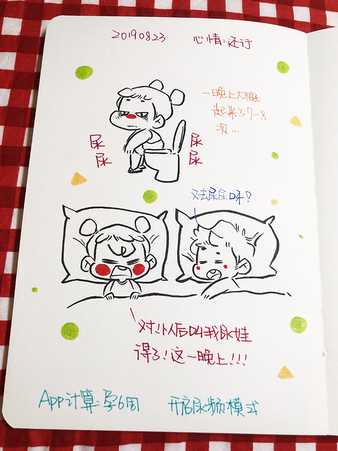 20190823 心情:还行
一晚上大概
起来了7-8
次...
尿 尿
尿 尿
又去尿尿啊?
对!以后叫我尿娃
得了!这一晚上!!!
App计算:孕6周 开启尿频模式